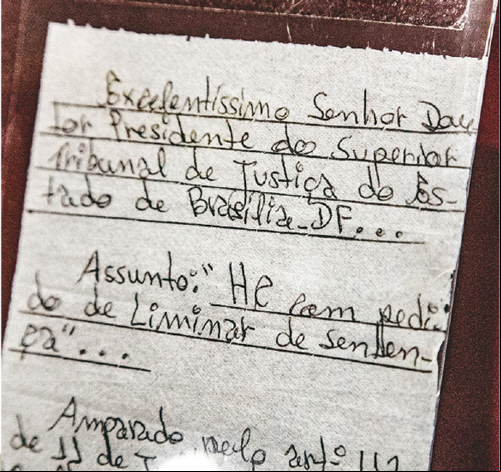 Excelentíssimo Senhor Dou
tor Presidente do Superior
Tribunal de Justiça do Es-
tado de Brasília-DF...
Assunto:" HC com pedi
do de Liminar de senten-
ça"...
Amparado pelo
de 11 de